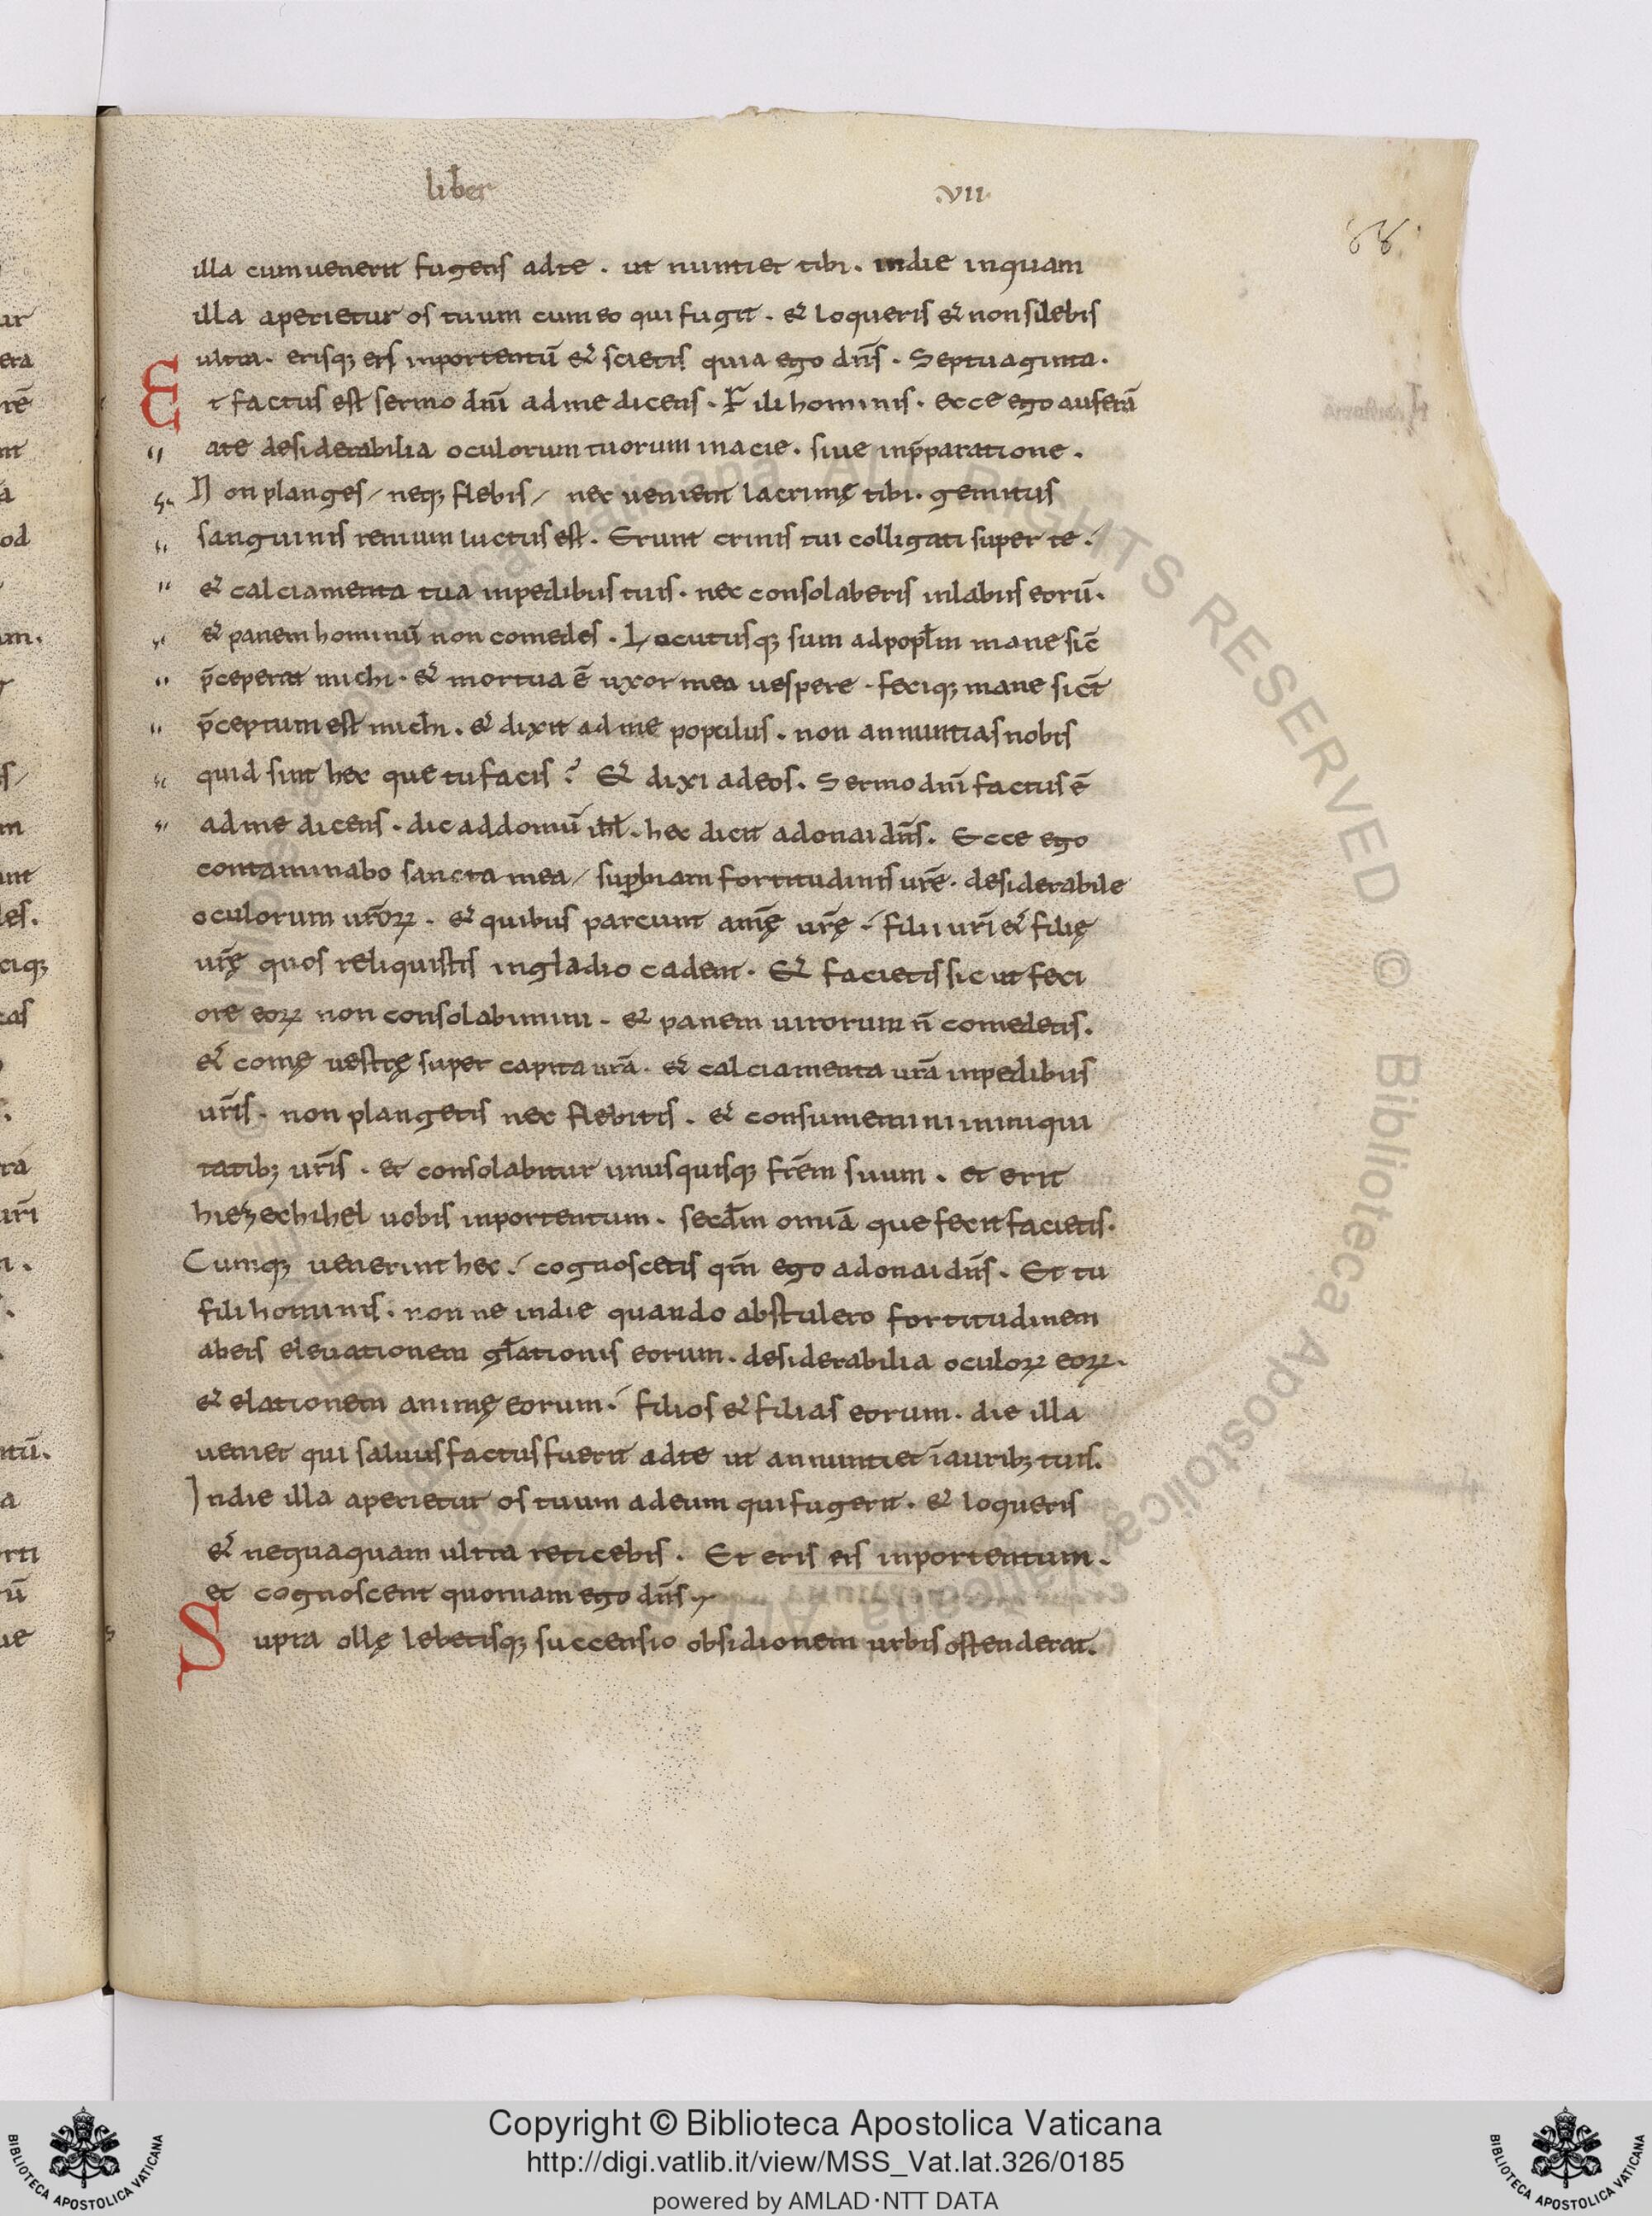 liber .VII.
88.
illa cum uenerit fugiens ad te . ut nuntiet tibi . in die inquam
illa aperietur os tuum cum eo qui fugit . & loqueris & non silebis
ultra . erisq; eis in portentū & scietis quia ego dn̄s . Septuaginta .
Et factus est sermo dn̄i ad me dicens . Fili hominis . ecce ego auferā
a te desiderabilia oculorum tuorum in acie . siue in p̄paratione .
Non planges / neq; flebis / nec uenient lacrimę tibi . gemitus
sanguinis renium luctus est . Erunt crinis tui colligati super te ./
& calciamenta tua in pedibus tuis . nec consolaberis in labiis eorū .
& panem hominū non comedes . Locutusq; sum ad popl̄m mane sic̄
p̄ceperat michi . & mortua ē uxor mea uespere . feciq; mane sic̄t
p̄ceptum est michi . & dixit ad me populus . non annuntias nobis
quid sint hec que tu facis ? & dixi ad eos . Sermo dn̄i factus ē
ad me dicens . dic ad domū isrl̄ . hec dicit adonai dn̄s . Ecce ego
contaminabo sancta mea / supbiam fortitudinis ur̄e . desiderabile
oculorum ur̄oꝝ . & quibus parcunt anīę ur̄ę ./ filii ur̄i & filię
ur̄ę quos reliquistis in gladio cadent . & facietis sicut feci
ore eoꝝ non consolabimini . & panem uirorum n̄ comedetis .
& comę uestrę super capita ur̄a . & calciamenta ur̄a in pedibus
ur̄is . non plangetis nec flebitis . & consumemini in iniqui
tatib; ur̄is . et consolabitur unusquisq; fr̄em suum . et erit
hiezechihel uobis in portentum . secdm̄ omīa que fecit facietis .
Cumq; uenerint hec ./ cognoscetis qm̄ ego adonai dn̄s . Et tu
fili hominis . non ne in die quando abstulero fortitudinem
ab eis eleuationem gl̄ationis eorum . desiderabilia oculoꝝ eoꝝ .
& elationem animę eorum ./ filios & filias eorum . die illa
ueniet qui saluus factus fuerit ad te ut annuntiet ī aurib; tuis .
In die illa aperietur os tuum ad eum qui fugerit . & loqueris
& nequaquam ultra reticebis . Et eris eis in portentum .
et cognoscent quoniam ego dn̄s
Supra ollę lebetisq; succensio obsidionem urbis ostenderat .
Copyright © Biblioteca Apostolica Vaticana
http://digi.vatlib.it/view/MSS_Vat.lat.326/0185
powered by AMLAD·NTT DATA
BIBLIOTECA APOSTOLICA VATICANA
BIBLIOTECA APOSTOLICA VATICANA